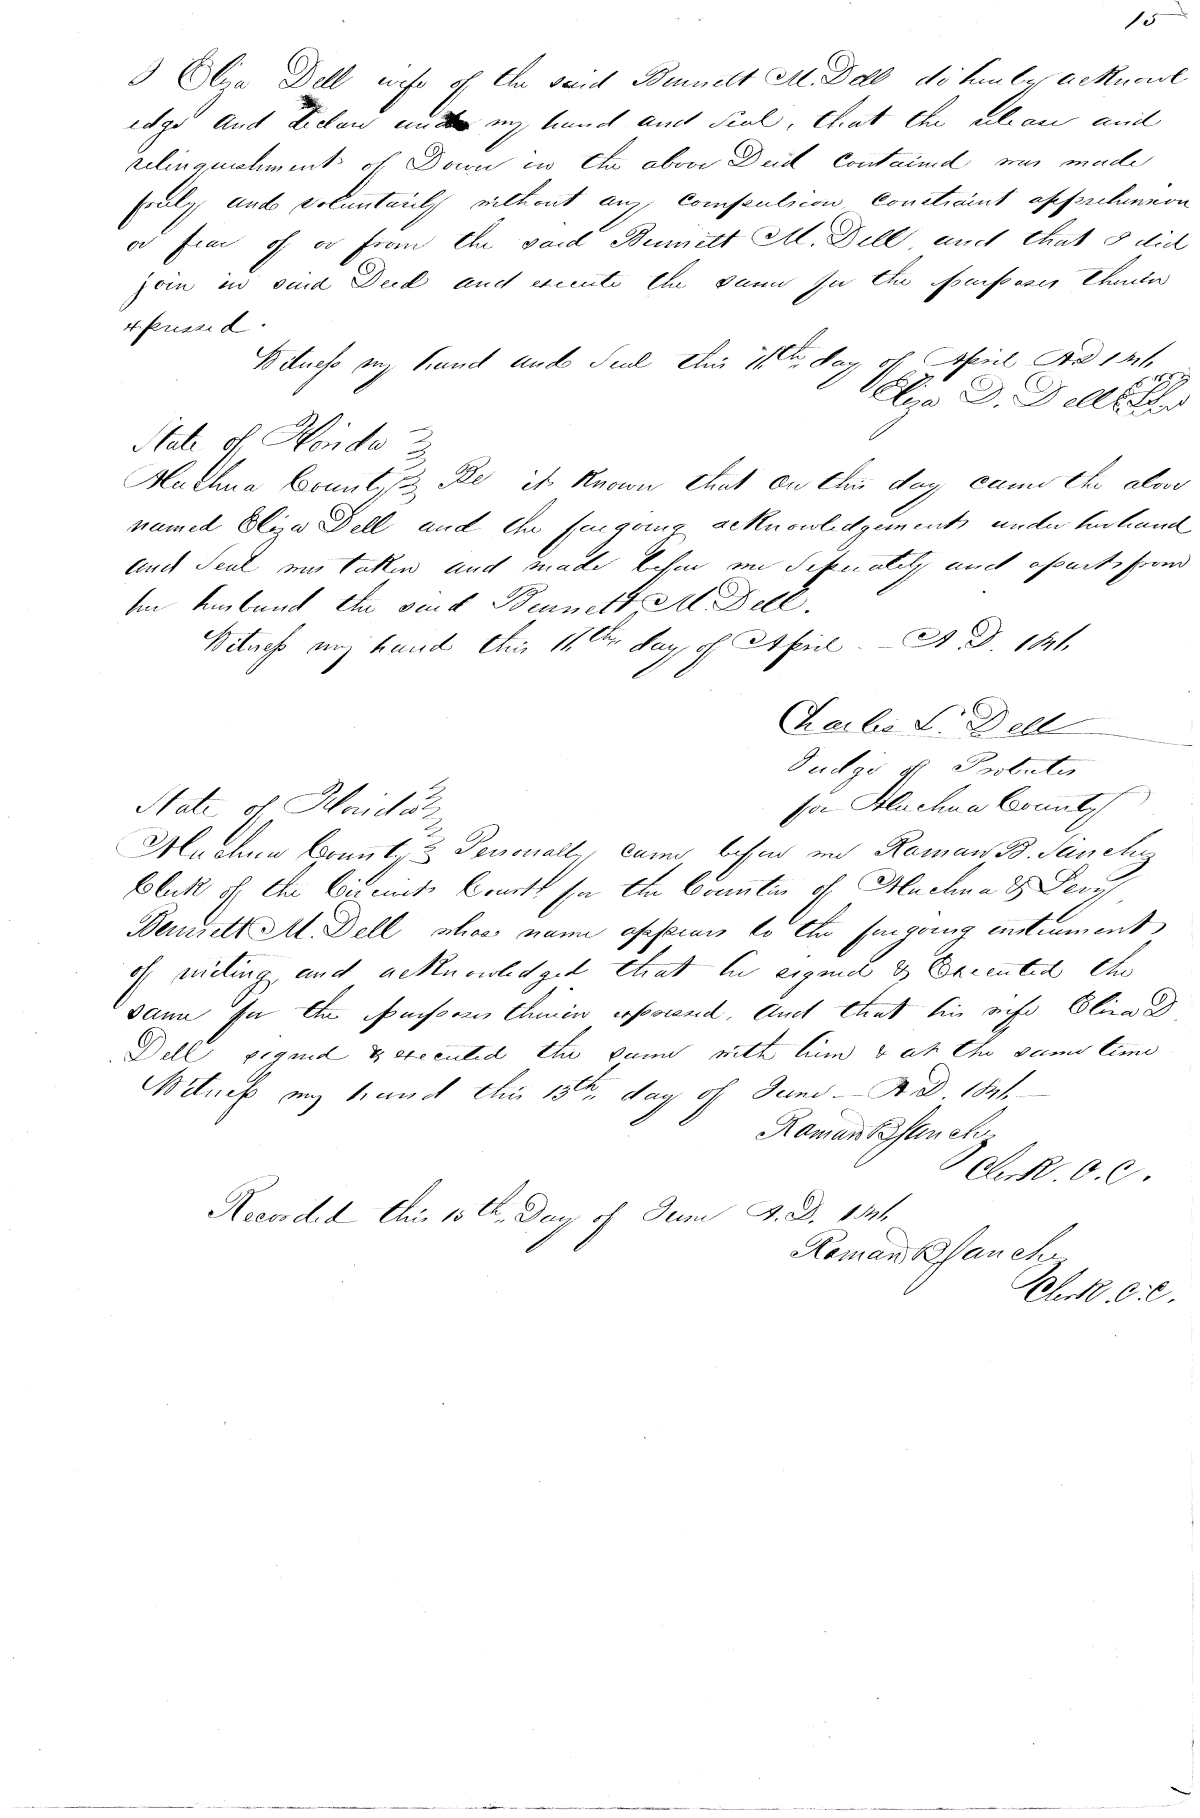 15
I Eliza Dell wife of the said Bennett M. Dell do hereby acknowl
edge and declare under my hand and Seal, that the release and
relinquishment of Dower in the above Deed contained was made
freely and voluntarily without any compulsion constraint apprehension
or fear of or from the said Bennett M. Dell and that I did
join in said Deed and execute the same for the purposes therein
expressed.
Witness my hand and Seal this 11th day of April AD 1846
Eliza D. Dell
State of Florida
Alachua County Be it Known that on this day came the above
named Eliza Dell and the foregoing acknowledgements under her hand
and Seal was taken and made before me Seperately and apart from
her husband the said Bennett M. Dell.
Witness my hand this 11th day of April – A.D. 1846
Charles L. Dell
Judge of Probates
for Alachua County
State of Florida
Alachua County Personally came before me Roman B. Sanchez
Clerk of the Circuit Court for the Counties of Alachua & Levy
Bennett M. Dell whose name appears to the foregoing instrument
of writing and acknowledged that he signed & Executed the
same for the purposes therein expressed, and that his wife Eliza D
Dell signed & executed the same with him & at the same time
Witness my hand this 13th day of June – A.D. 1846 –
Roman B Sanchez
Clerk. C. C.
Recorded this 13th Day of June A.D. 1846
Roman B Sanchez
Clerk. C. C.